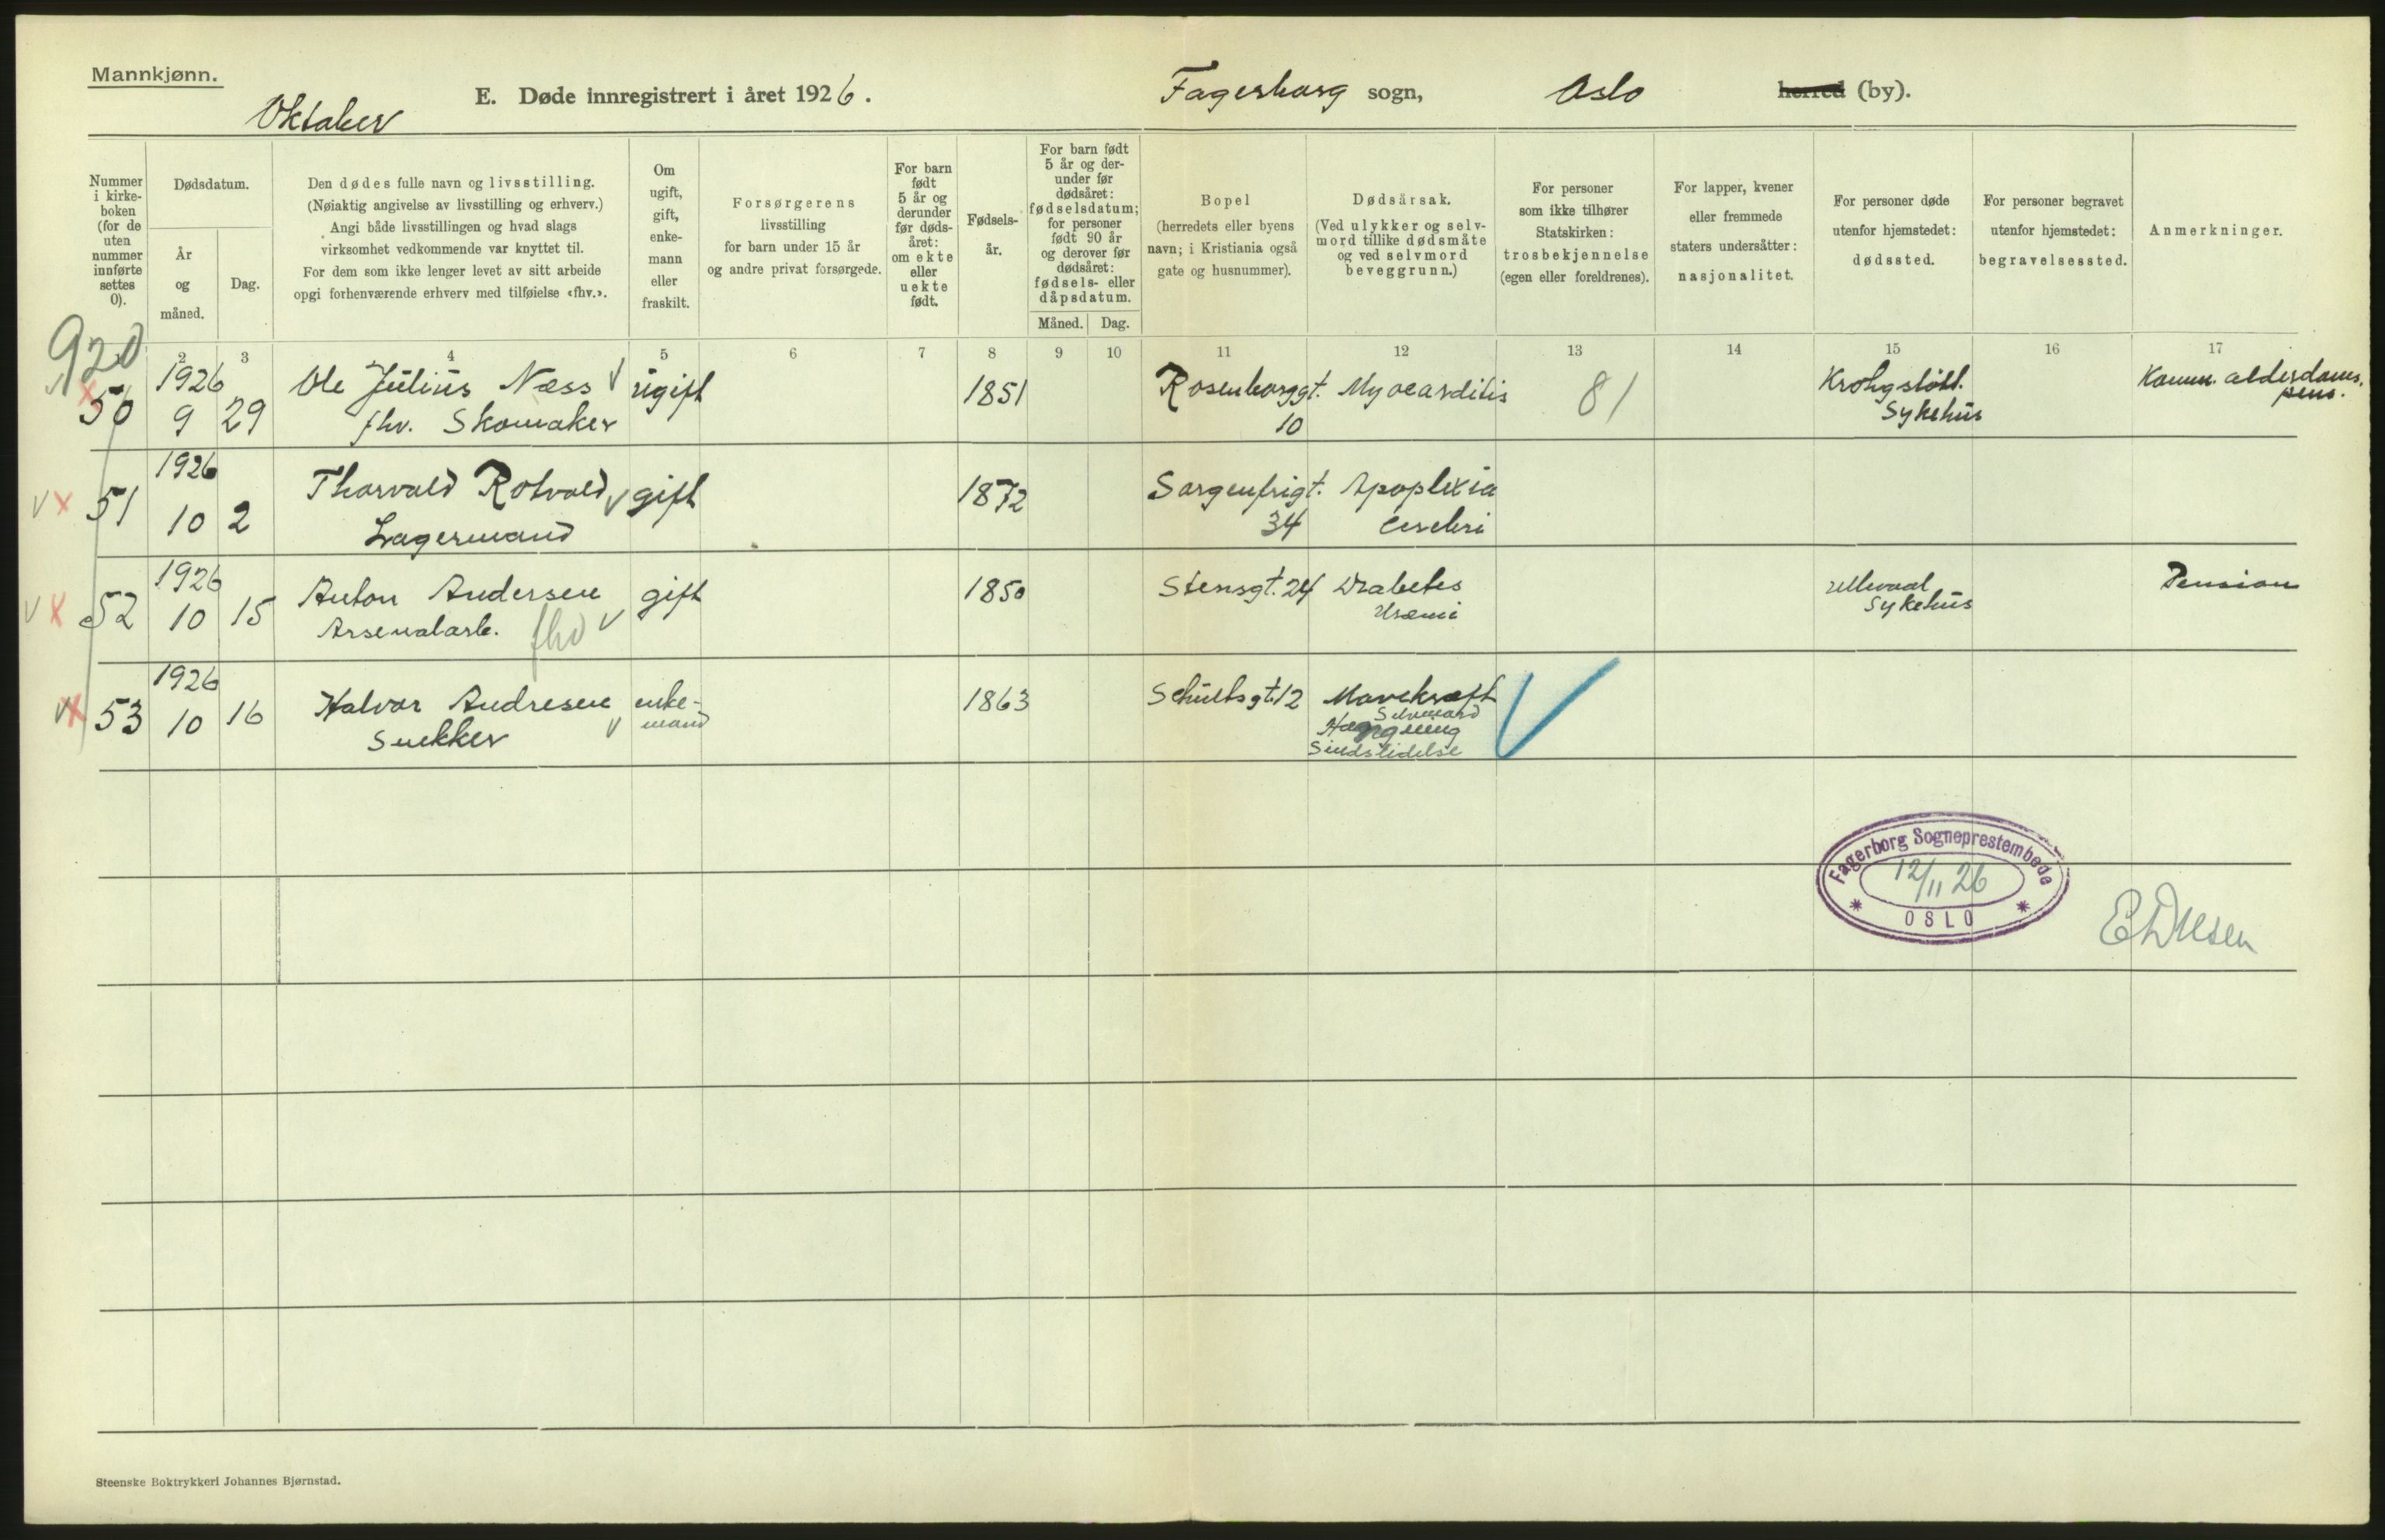 Mannkjønn.
Oktober
E. Døde innregistrert i året 1926.
Fagerborg sogn, Oslo herred (by).
Nummer i kirke-boken (for de uten nummer innførte settes 0).
Dødsdatum.
År og måned.
Dag.
Den dødes fulle navn og livsstilling.
(Nøiaktig angivelse av livsstilling og erhverv.)
Angi både livsstillingen og hvad slags
virksomhet vedkommende var knyttet til.
For dem som ikke lenger levet av sitt arbeide
opgi forhenværende erhverv med tilføielse «fhv.».
Om ugift, gift, enke-mann eller fraskilt.
Forsørgerens
livsstilling
for barn under 15 år
og andre privat forsørgede.
For barn født 5 år og derunder før døds-året: om ekte eller uekte født.
Fødsels-år.
For barn født 5 år og der-under før dødsåret: fødselsdatum; for personer født 90 år og derover før dødsåret: fødsels- eller dåpsdatum.
Måned. Dag.
Bopel
(herredets eller byens
navn; i Kristiania også
gate og husnummer).
Dødsårsak.
(Ved ulykker og selv-
mord tillike dødsmåte
og ved selvmord
beveggrunn.)
For personer
som ikke tilhører
Statskirken:
trosbekjennelse
(egen eller foreldrenes).
For lapper, kvener
eller fremmede
staters undersåtter:
nasjonalitet.
For personer døde
utenfor hjemstedet:
dødssted.
For personer begravet
utenfor hjemstedet:
begravelsessted.
Anmerkninger.
920
2 3 4 5 6 7 8 9 10 11 12 13 14 15 16 17
50 1926 9 29 Ole Julius Næss ugift 1851 Rosenborggt. Myocarditis 81 Krohgstøtt. Komm. alderdoms.
fhv. Skomaker 10 Sykehus pens.
51 1926 10 2 Thorvald Rotvold gift 1872 Sorgenfrigt. Apoplexia
Lagermand 34 cerebri
52 1926 10 15 Anton Andersen gift 1850 Stensgt. 24 Diabetes Ullevaal Pension
Arsenalarb. fhv Uræmi Sykehus
53 1926 10 16 Halvor Andresen enke- 1863 Schultsgt. 12 Mavekræft
Snekker mand Selvmord
Hængning
Sindslidelse
Fagerborg Sogneprestembede
12/11 26
OSLO
Steenske Boktrykkeri Johannes Bjørnstad.